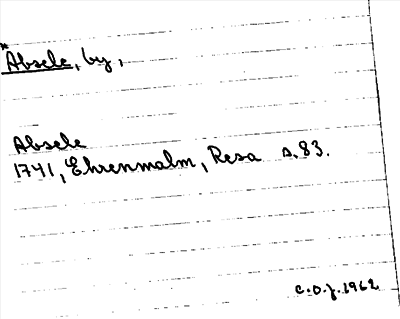 *Absele, by,
Absele
1741, Ehrenmalm, Resa s. 83.
C.O.J. 1962